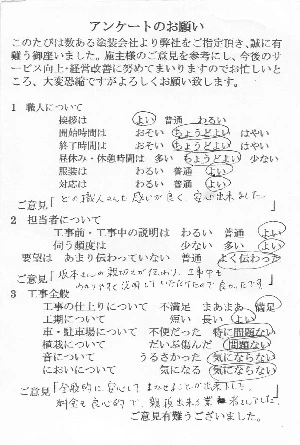 アンケートのお願い
このたびは数ある塗装会社より弊社をご指定頂き、誠に有
難う御座いました。施主様のご意見を参考にし、今後のサ
ービス向上・経営改善に努めてまいりますのでお忙しいと
ころ、大変恐縮ですがよろしくお願い致します。
1 職人について
挨拶は よい 普通 わるい
開始時間は おそい ちょうどよい はやい
終了時間は おそい ちょうどよい はやい
昼休み・休憩時間は 多い ちょうどよい 少ない
服装は わるい 普通 よい
対応は わるい 普通 よい
ご意見「どの職人さんも感じが良く、安心出来ました」
2 担当者について
工事前・工事中の説明は わるい 普通 よい
伺う頻度は 少ない 多い よい
要望は あまり伝わっていない 普通 よく伝わった
ご意見「坂本さんの親切さが伝わり、工事中も
わかりやすく説明していただけたので良かったです」
3 工事全般
工事の仕上りについて 不満足 まあまあ 満足
工期について 短い 長い よい
車・駐車場について 不便だった 特に問題ない
植栽について だいぶ傷んだ 問題ない
音について うるさかった 気にならない
においについて 気になる 気にならない
ご意見「全般的に安心してまかせることが出来ました。
料金も良心的で、親後出来る業者さんでした」
ご意見有難うございました。